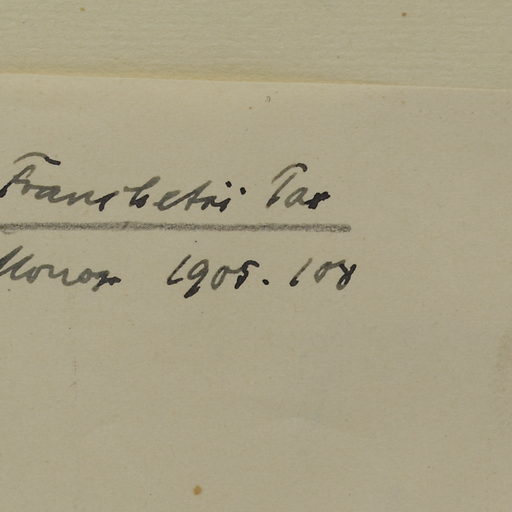 Franchetii Tax
Monog 1905. 108